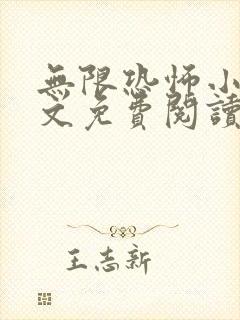 無限恐怖小
文免費閱讀
王志新